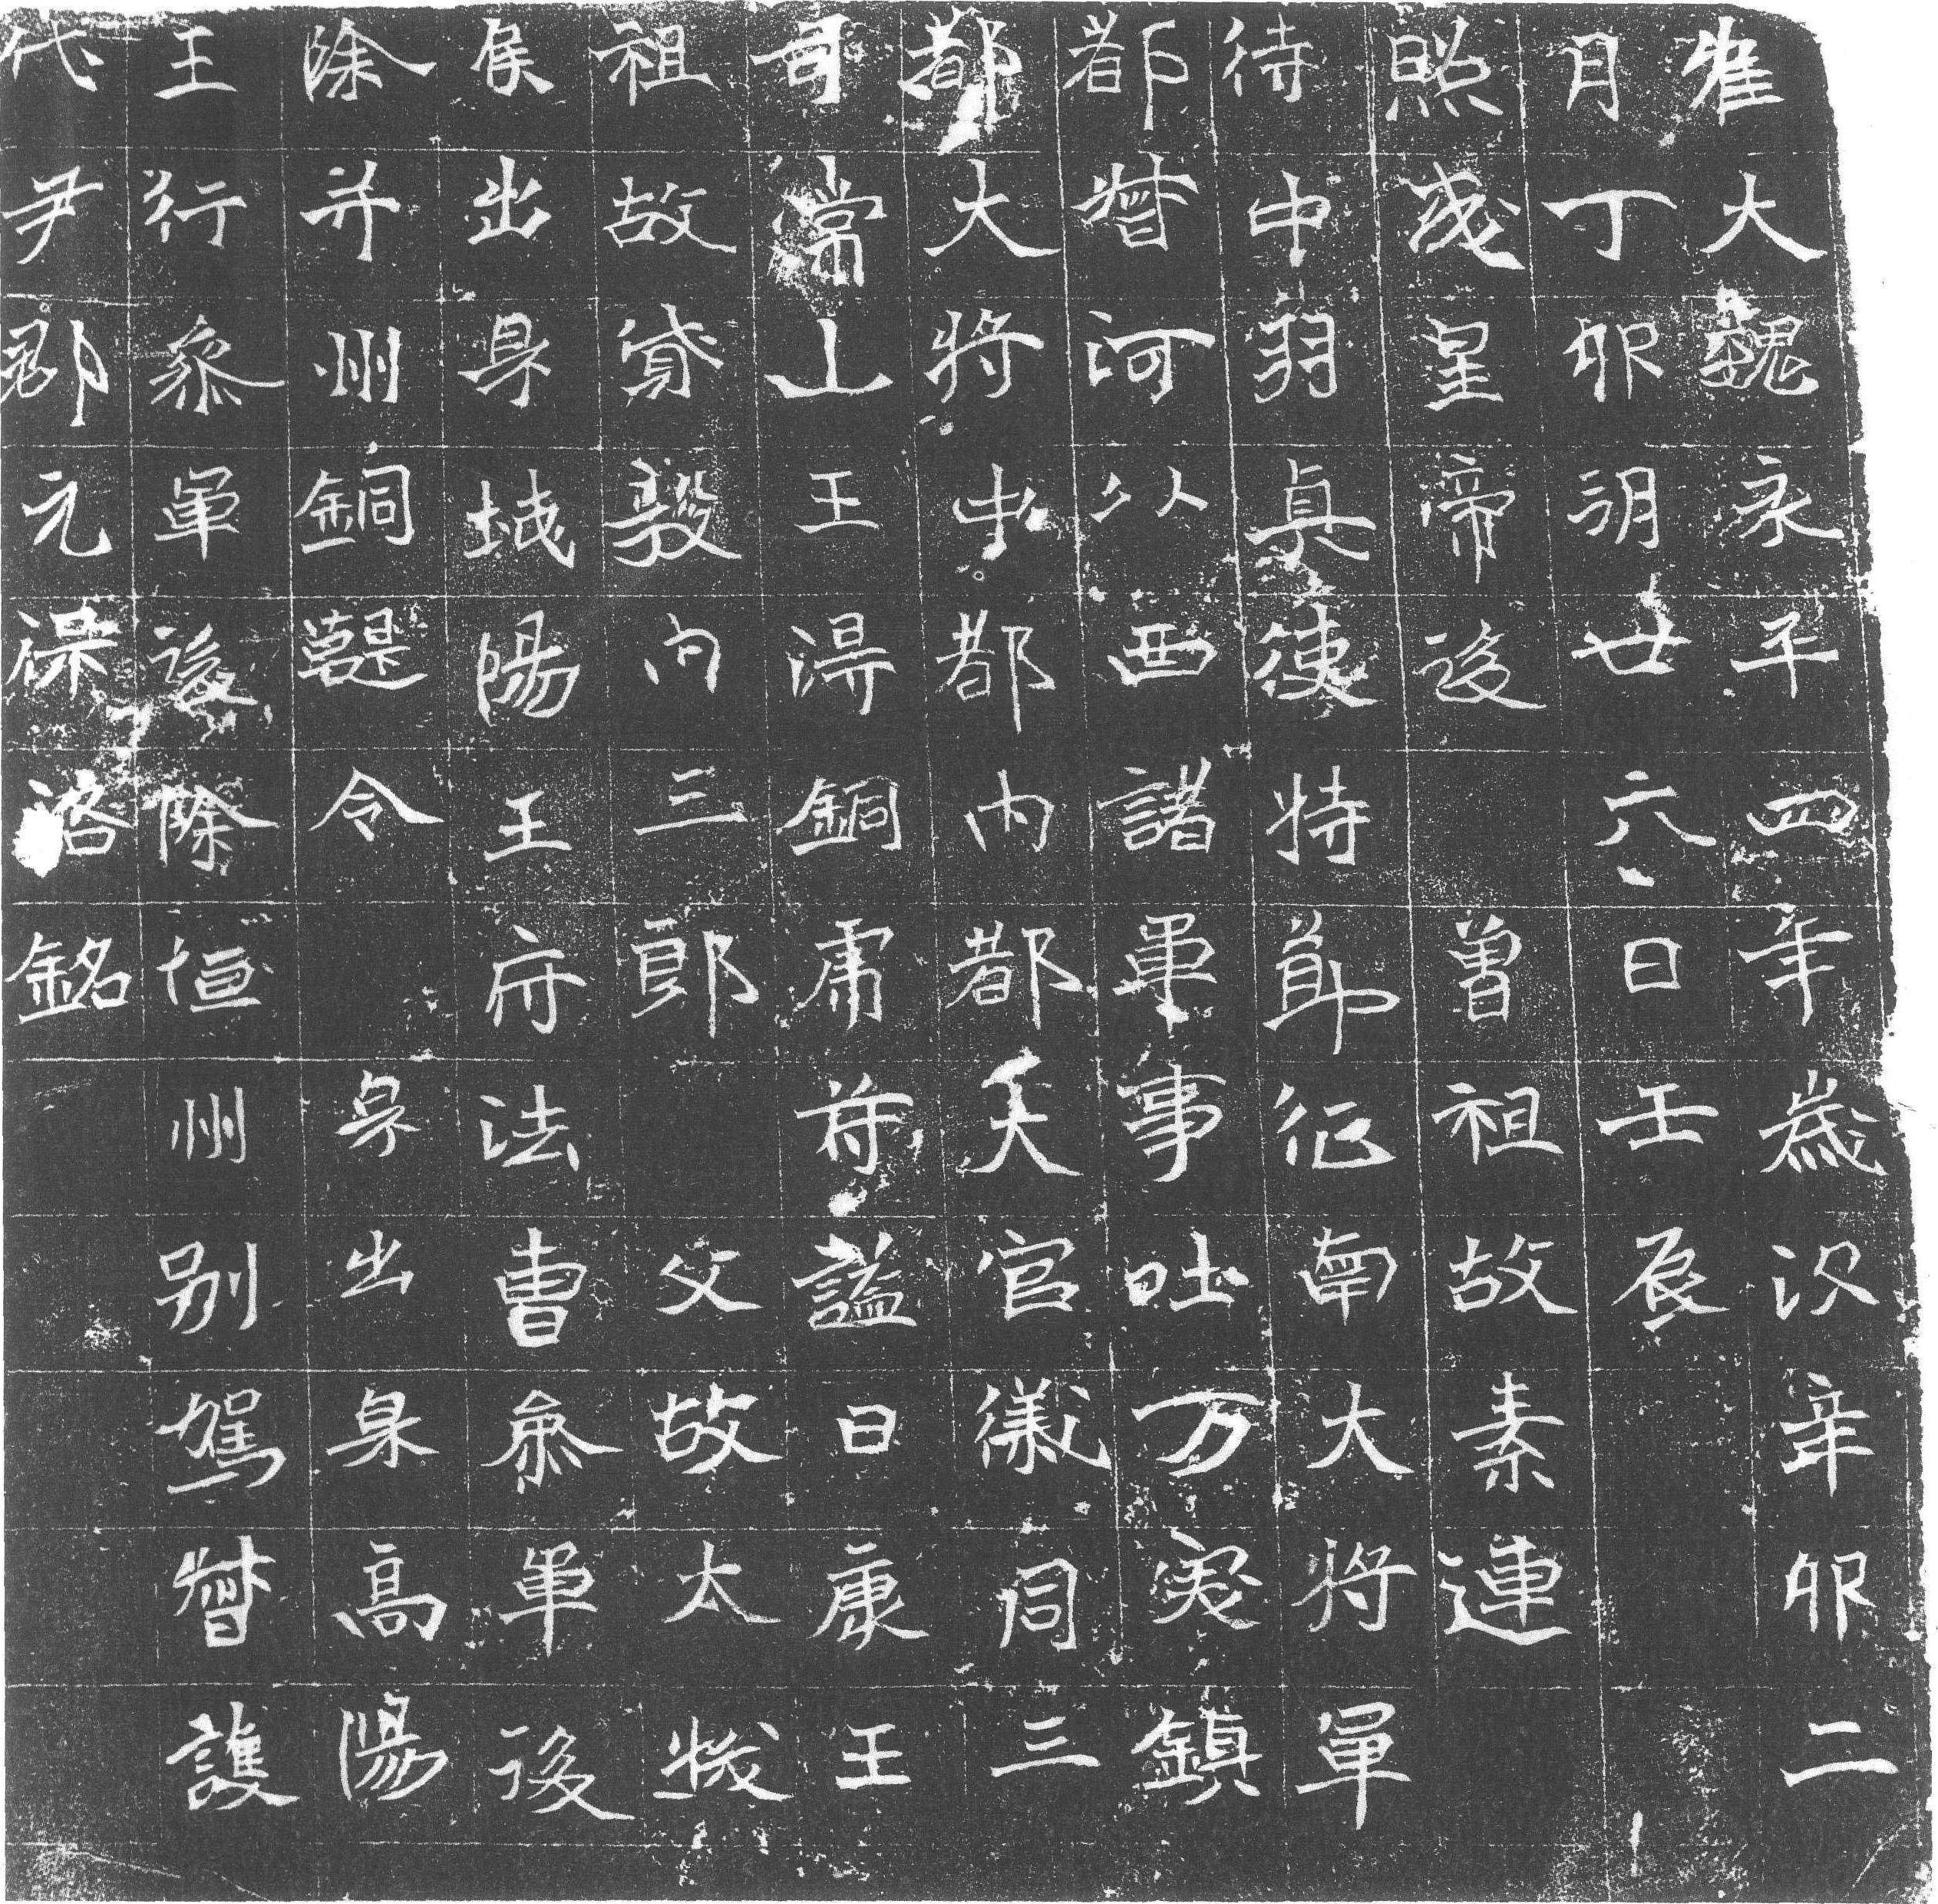 隹大魏永平四年歲次辛卯二
月丁卯朔廿六日壬辰
照成皇帝後 曾祖故素連
侍中羽真使持節征南大將軍
都督河以西諸軍事吐万突鎮
都大將中都內都大官儀同三
司常山王得銅虎符謚曰康王
祖故貸毅內三郎 父故太拔
侯出身城陽王府法曹參軍後
除并州銅鞮令 身出身高陽
王行參軍後除恒州別駕督護
代尹郡元保洛銘